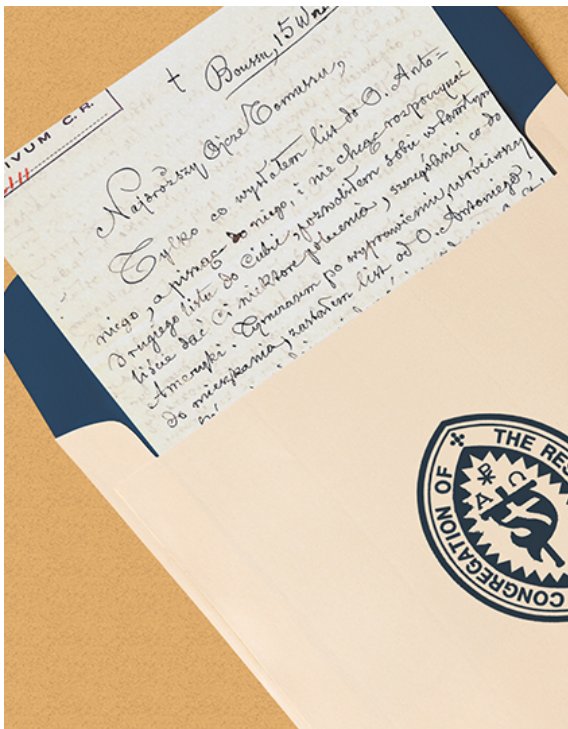 IVUM C. R.
† Boussu, 15 Wrze
Najdroższy Ojcze Tomaszu,
Tylko co wysłałem list do O. Anto=
niego, a pisząc do niego, i nie chcąc rozpoczynać
drugiego listu do Ciebie, pozwoliłem sobie w tamtym
liście dać Ci niektóre polecenia, szczególniej co do
Ameryki. Tymczasem po wyprawieniu, wróciwszy
do mieszkania, zastałem list od O. Antoniego,
CONGREGATION OF THE RES